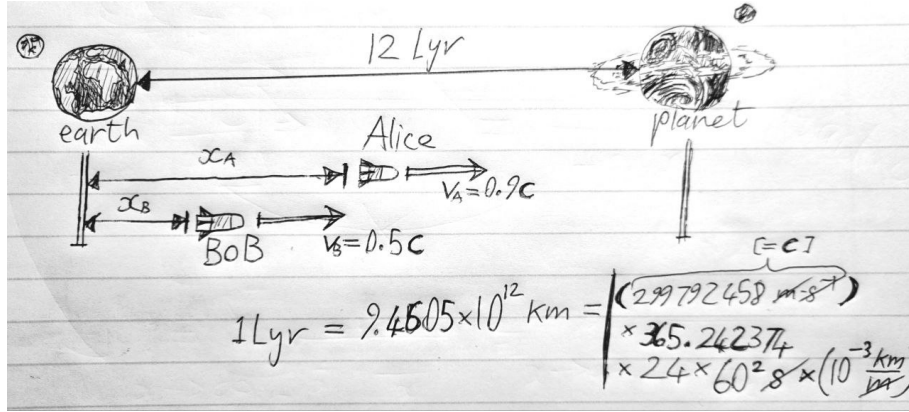 12 Lyr
earth
planet
Alice
x_A
V_A=0.9c
x_B
BOB
V_B=0.5c
[=c]
1Lyr = 9.4605×10¹² km = (299792458 m·s⁻¹)
×365.242374
×24×60² s ×(10⁻³ km/m)